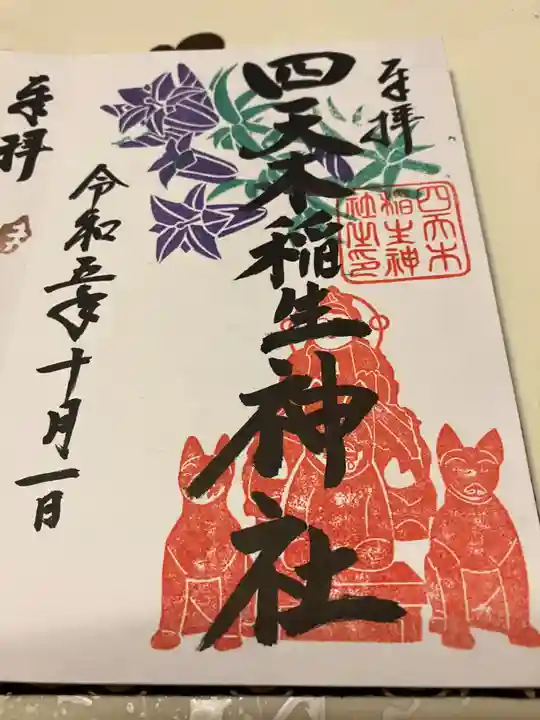 奉拝
四天木稲生神社
四天木
稲生神
社之印
令和五年十月一日
奉拝